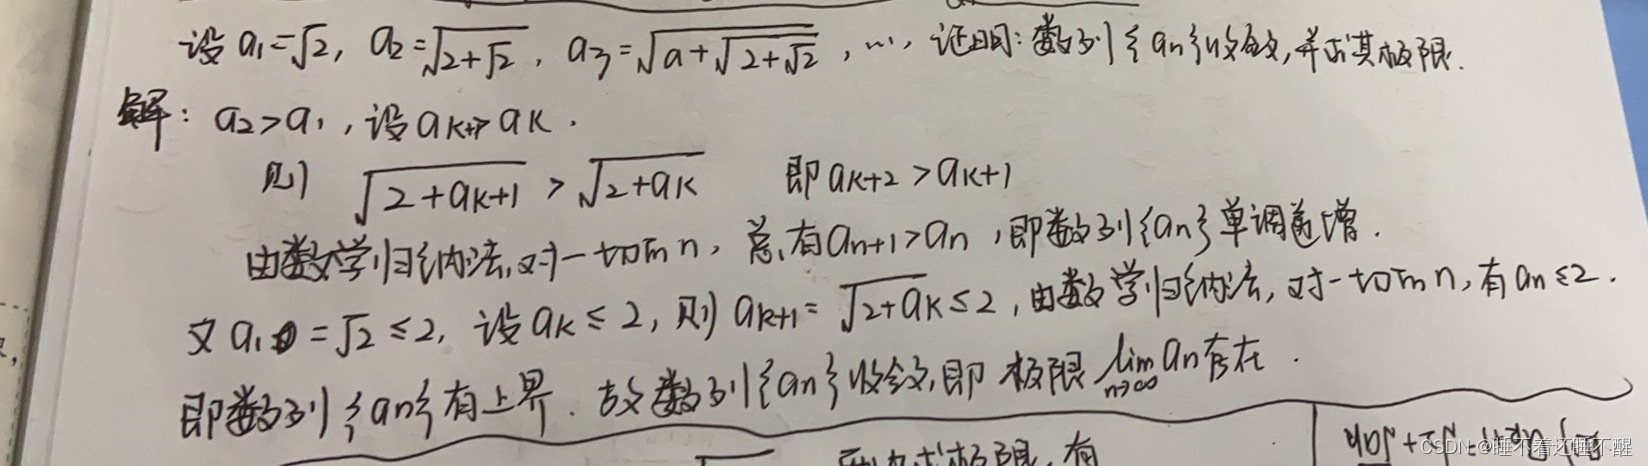 设 a₁=√2, a₂=√(2+√2), a₃=√(a+√(2+√2)), …, 证明: 数列{an}收敛,并求其极限.
解: a₂>a₁, 设 aK+1>aK.
则 √(2+aK+1) > √(2+aK) 即 aK+2>aK+1
由数学归纳法,对一切n, 总有an+1>an, 即数列{an}单调递增.
又 a₁=√2≤2, 设aK≤2, 则 aK+1=√(2+aK)≤2, 由数学归纳法, 对一切n, 有an≤2.
即数列{an}有上界. 故数列{an}收敛,即 极限 lim n→∞ an存在.
极限,有
CSDN @睡不着还睡不醒